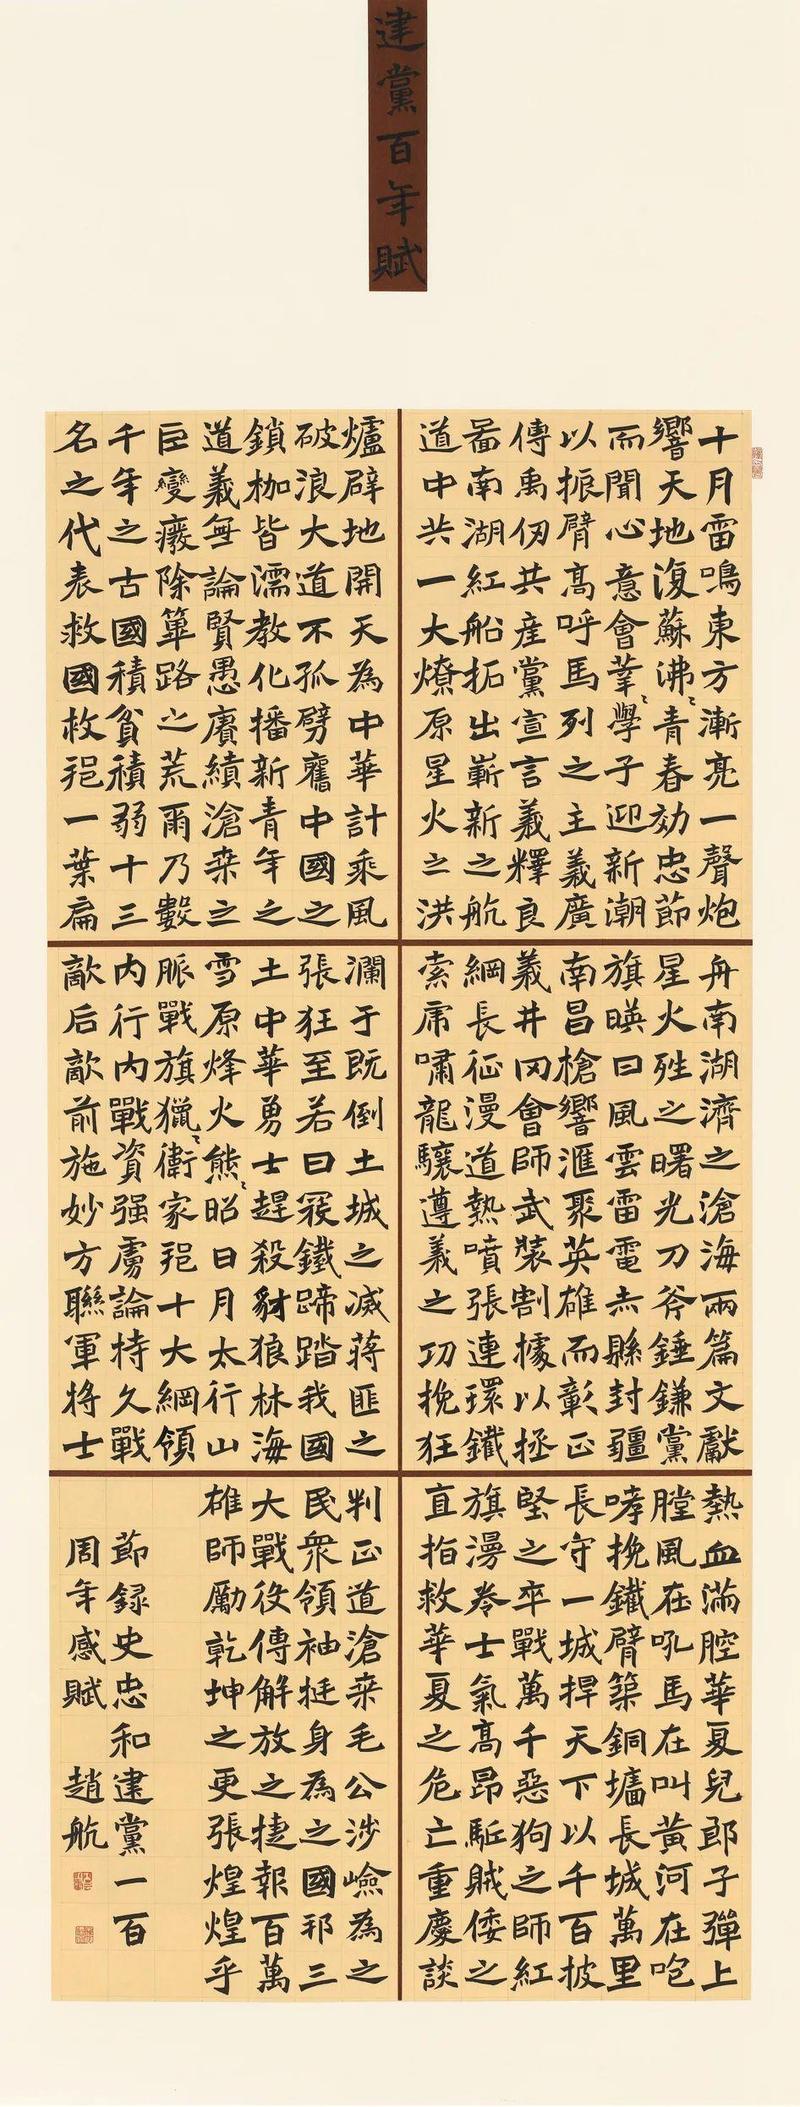 建黨百年賦
十月雷鳴東方漸亮一聲炮
響天地復蘇沸〻青春効忠節
而聞心意會莘〻學子迎新潮
以振臂高呼馬列之主義廣
傳禹仞共産黨宣言義釋良
啚南湖紅船拓出嶄新之航
道中共一大燎原星火之洪
爐辟地開天為中華計乘風
破浪大道不孤劈舊中國之
鎖枷皆濡教化播新青年之
道義無論賢愚賡續滄桒之
巨變癈除篳路之荒爾乃數
千年之古國積貧積弱十三
名之代表救國救邦一葉扁
舟南湖濟之滄海兩篇文獻
星火之曙光刀斧錘鎌黨
旗暎日風雲雷電赤縣封疆
南昌槍響滙聚英雄而彰正
義井冈會師武裝割據以拯
綱長征漫道熱噴張連環鐵
索虎嘯龍驤遵義之功挽狂
瀾于既倒土城之滅蔣匪之
張狂至若日寇鐵蹄踏我國
土中華勇士趕殺豺狼林海
雪原烽火熊〻昭日月太行山
脈戰旗獵〻衛家邦十大綱領
内行内戰資强虜論持久戰
敵后敵前施妙方聯軍将士
熱血滿腔華夏兒郎子彈上
膛風在吼馬在叫黃河在咆
哮挽鐵臂築銅墻長城萬里
長守一城捍天下以千百披
堅之卒戰萬千惡狗之師紅
旗漫卷士氣高昂駈賊倭之
直指救華夏之危亡重慶談
判正道滄桒毛公涉嶮為之
民衆領袖挺身為之國邦三
大戰役傳解放之捷報百萬
雄師勵乾坤之更張煌煌乎
節録史忠和建黨一百
周年感賦 趙航